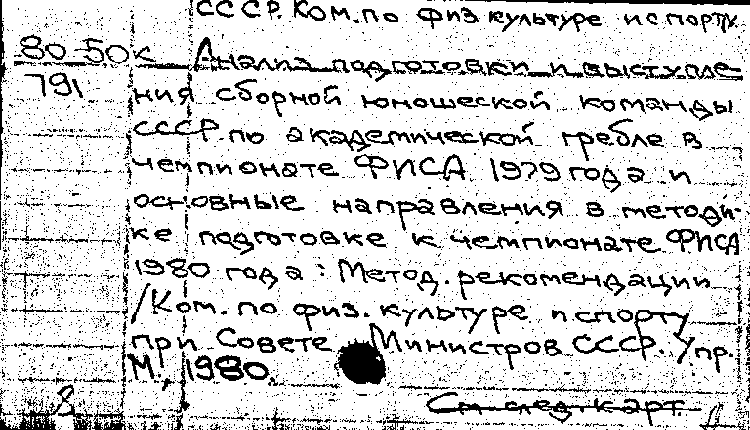 СССР. Ком. по физ культуре и спорту.
80-50к Анализ подготовки и выступле-
791 ния сборной юношеской команды
СССР по академической гребле в
чемпионате ФИСА 1979 года и
основные направления в методи-
ке подготовке к чемпионате ФИСА
1980 года : Метод. рекомендации
/Ком. по физ. культуре и спорту
при Совете Министров СССР. Упр.
М., 1980.
См след. карт.